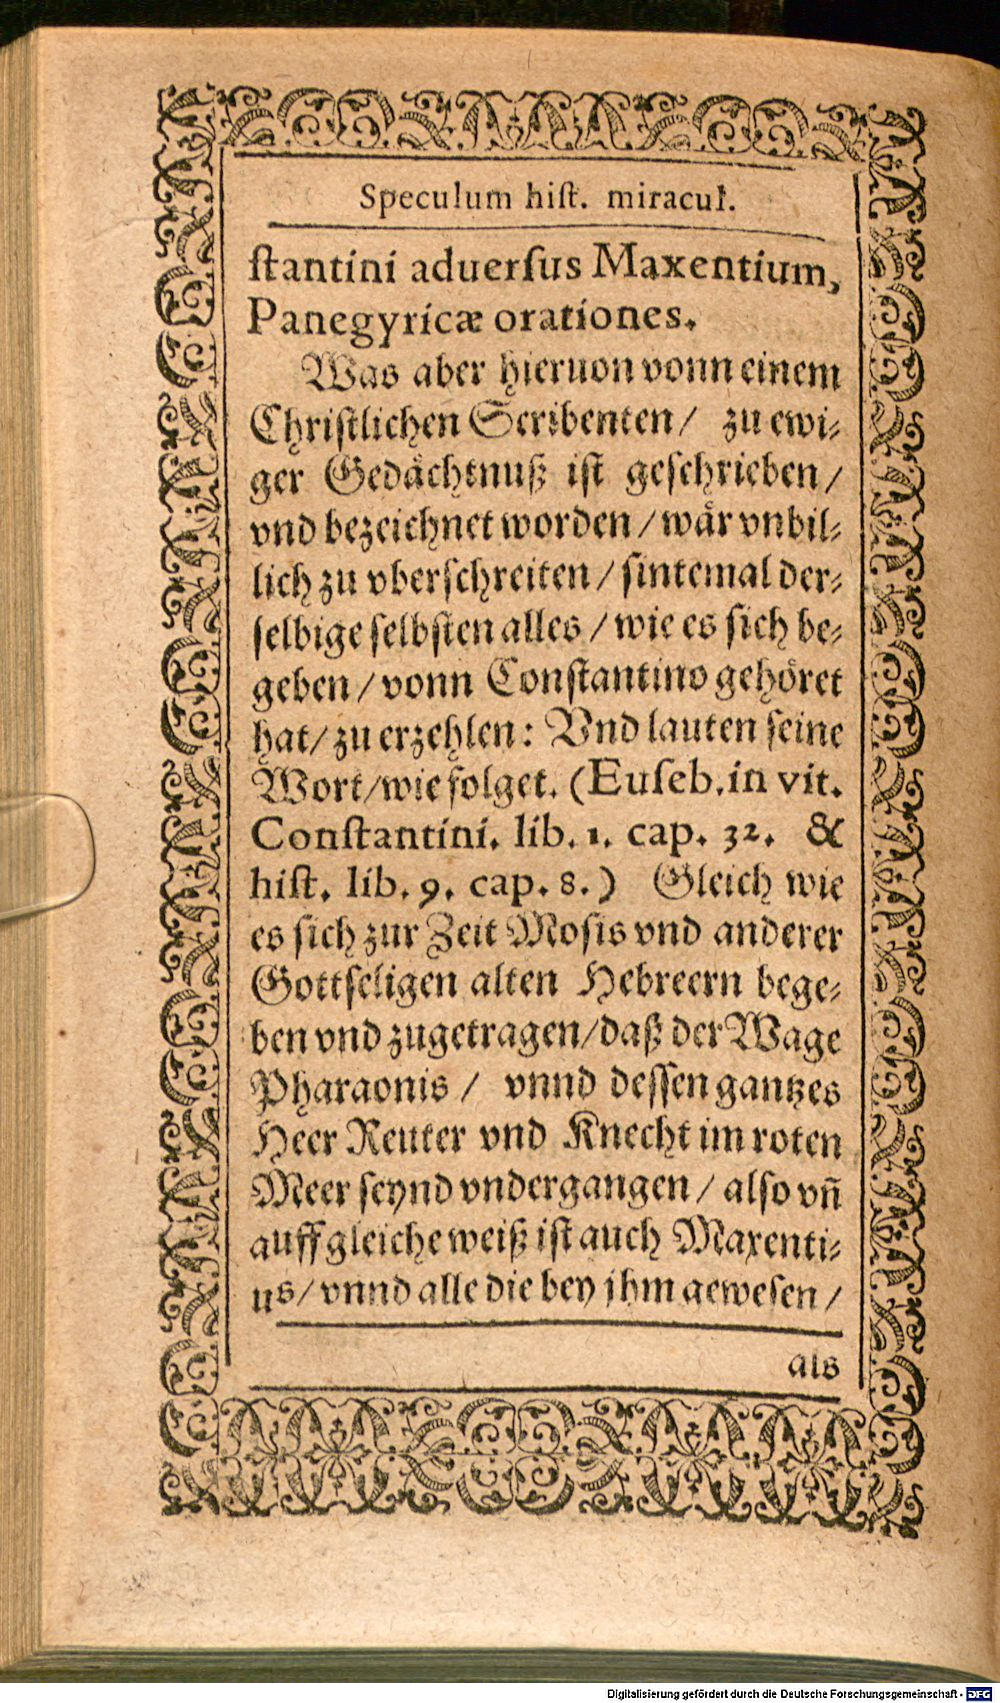 Speculum hiſt. miracul.
ſtantini aduerſus Maxentium,
Panegyricæ orationes.
Was aber hieruon vonn einem
Chriſtlichen Scribenten / zu ewi-
ger Gedächtnuß iſt geſchrieben /
vnd bezeichnet worden / wär vnbil-
lich zu vberſchreiten / ſintemal der-
ſelbige ſelbſten alles / wie es ſich be-
geben / vonn Conſtantino gehöret
hat / zu erzehlen: Vnd lauten ſeine
Wort / wie folget. (Euſeb. in vit.
Conſtantini. lib. 1. cap. 32. &
hiſt. lib. 9. cap. 8.) Gleich wie
es ſich zur Zeit Moſis vnd anderer
Gottſeligen alten Hebreern bege-
ben vnd zugetragen / daß der Wage
Pharaonis / vnnd deſſen gantzes
Heer Reuter vnd Knecht im roten
Meer ſeynd vndergangen / alſo vñ
auff gleiche weiß iſt auch Maxenti-
us / vnnd alle die bey jhm geweſen /
als
Digitalisierung gefördert durch die Deutsche Forschungsgemeinschaft - DFG